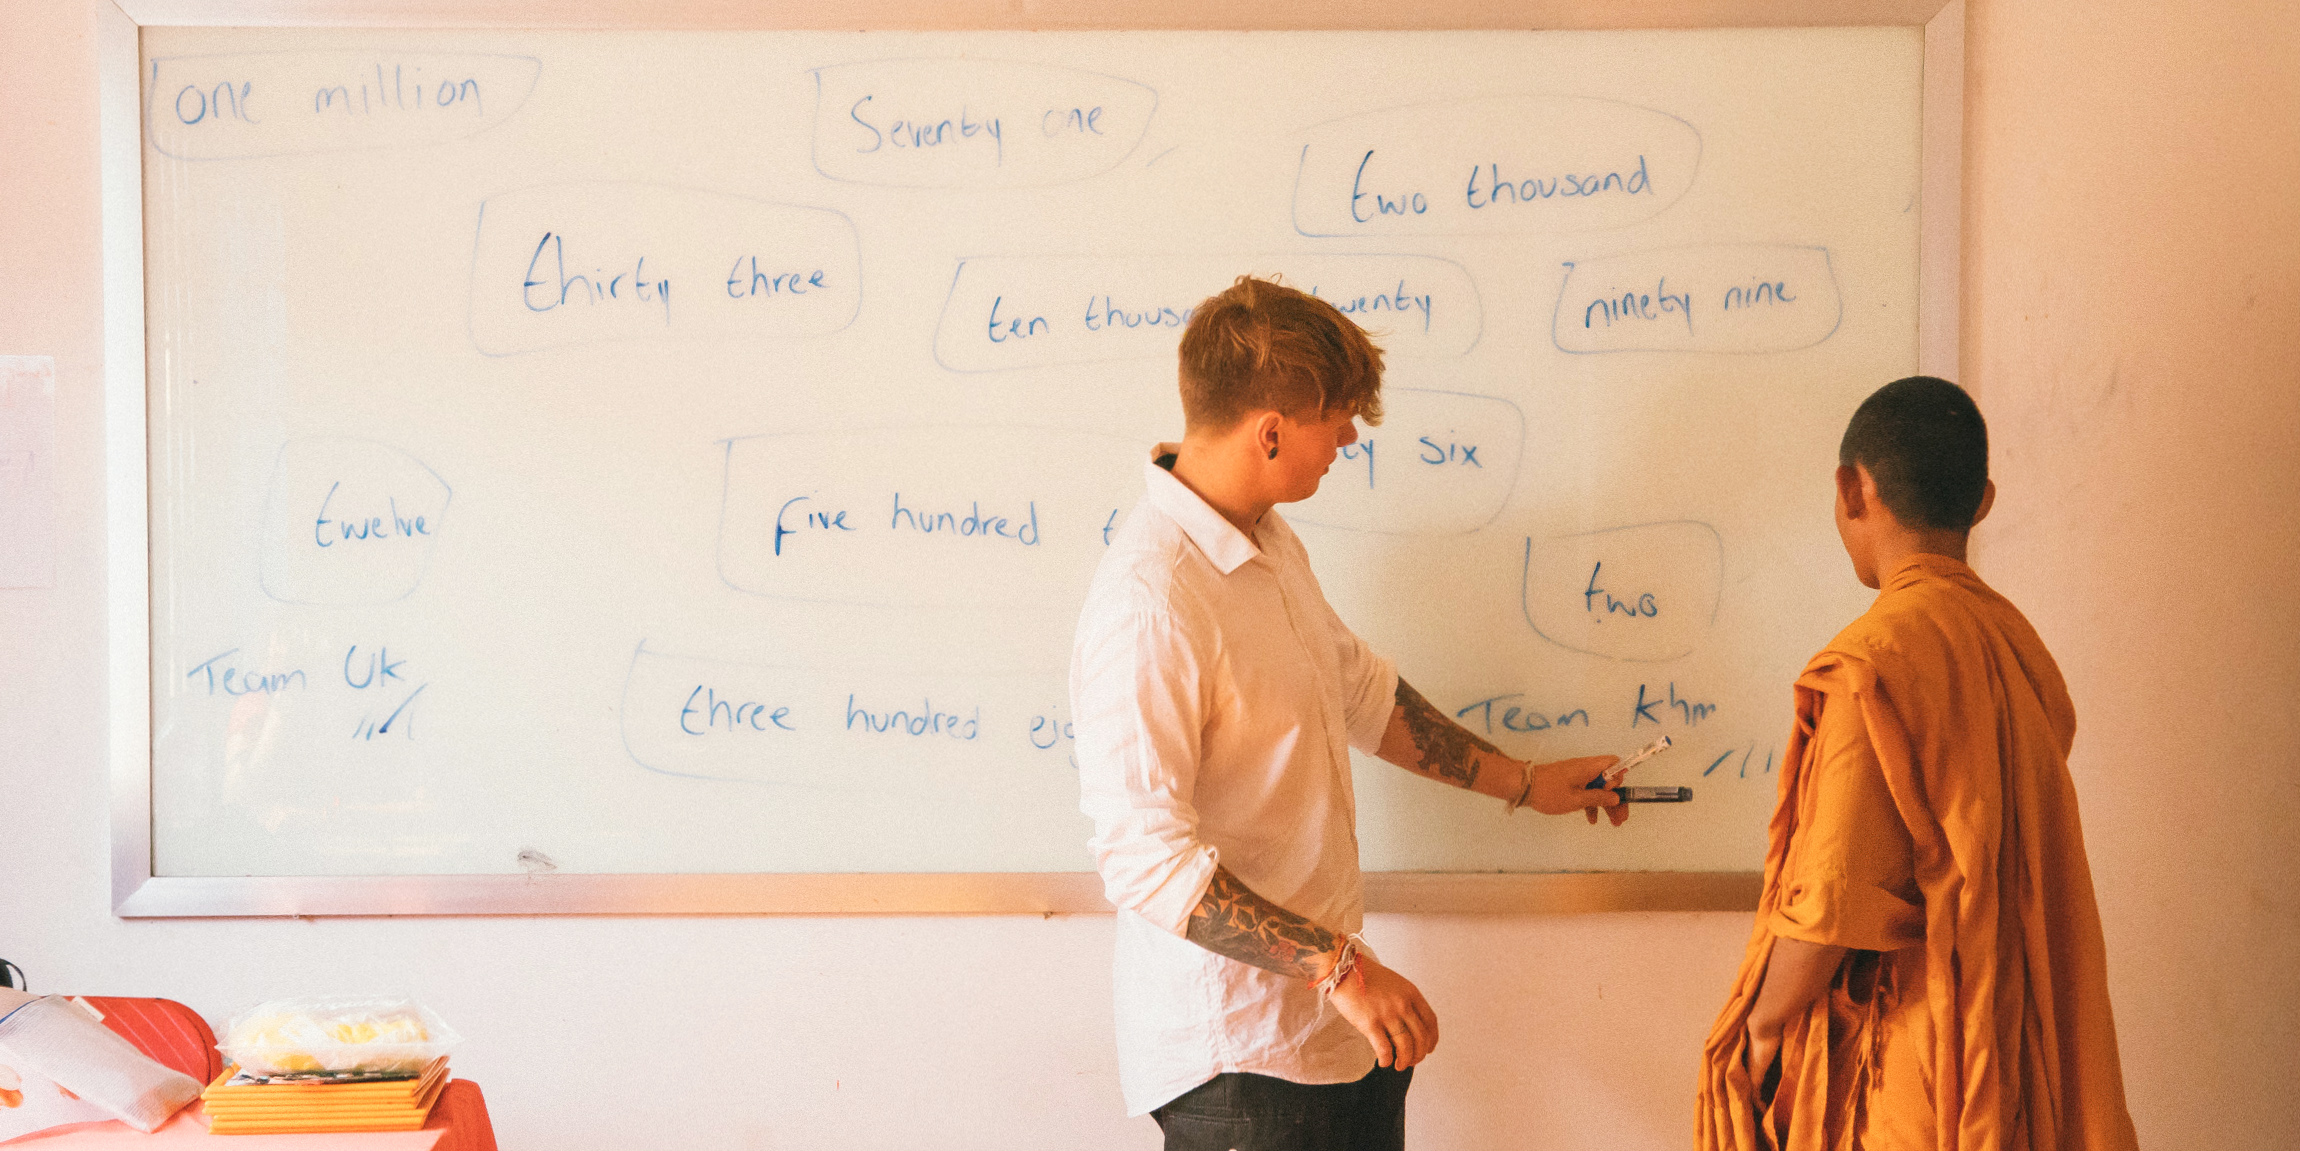 one million
Seventy one
two thousand
thirty three
ten twenty
ninety nine
six
twelve
five hundred
two
Team Uk
three hundred
Team Khm